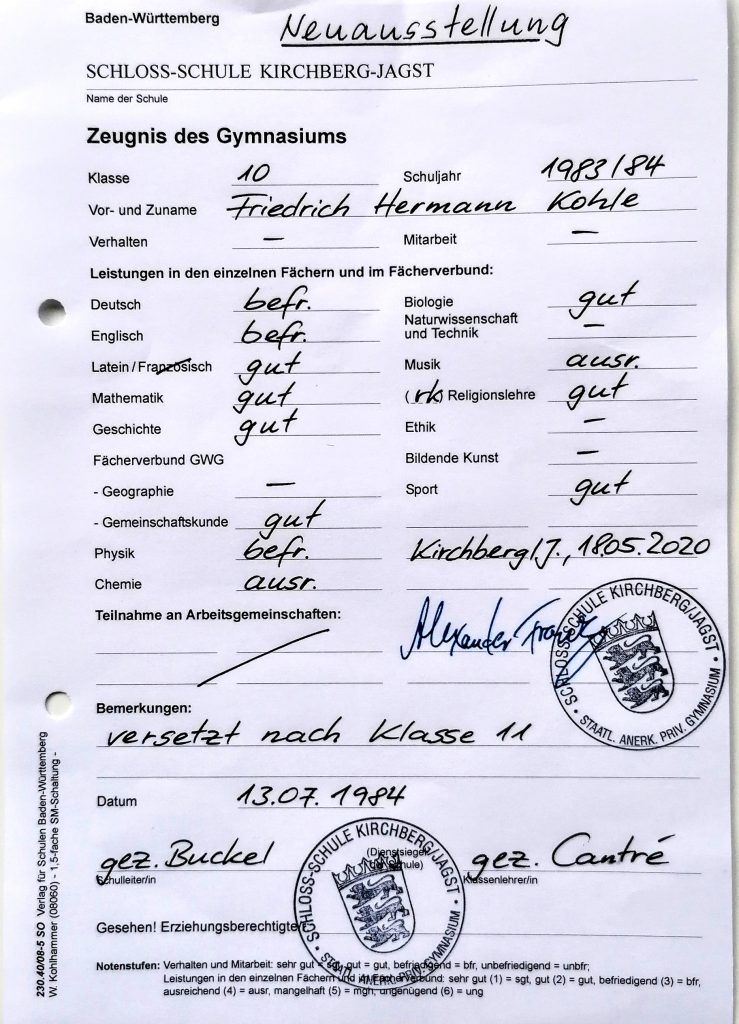 Baden-Württemberg
Neuausstellung
SCHLOSS-SCHULE KIRCHBERG-JAGST
Name der Schule
Zeugnis des Gymnasiums
Klasse 10 Schuljahr 1983/84
Vor- und Zuname Friedrich Hermann Kohle
Verhalten — Mitarbeit —
Leistungen in den einzelnen Fächern und im Fächerverbund:
Deutsch befr. Biologie gut
Naturwissenschaft
Englisch befr. und Technik —
Latein / Französisch gut Musik ausr.
Mathematik gut (rk) Religionslehre gut
Geschichte gut Ethik —
Fächerverbund GWG Bildende Kunst —
- Geographie — Sport gut
- Gemeinschaftskunde gut
Physik befr. Kirchberg/J., 18.05.2020
Chemie ausr.
Teilnahme an Arbeitsgemeinschaften:
Alexander
SCHLOSS-SCHULE KIRCHBERG/JAGST
STAATL. ANERK. PRIV. GYMNASIUM
Bemerkungen:
versetzt nach Klasse 11
Datum 13.07.1984
gez. Buckel (Dienstsiegel gez. Cantré
der Schule)
Schulleiter/in Klassenlehrer/in
SCHLOSS-SCHULE KIRCHBERG/JAGST
STAATL. ANERK. PRIV. GYMNASIUM
Gesehen! Erziehungsberechtigte/r
Notenstufen: Verhalten und Mitarbeit: sehr gut = sgt, gut = gut, befriedigend = bfr, unbefriedigend = unbfr;
Leistungen in den einzelnen Fächern und im Fächerverbund: sehr gut (1) = sgt, gut (2) = gut, befriedigend (3) = bfr,
ausreichend (4) = ausr, mangelhaft (5) = mgh, ungenügend (6) = ung
230.40/08-5 SO Verlag für Schulen Baden-Württemberg
W. Kohlhammer (08060) - 1,5-fache SM-Schaltung -